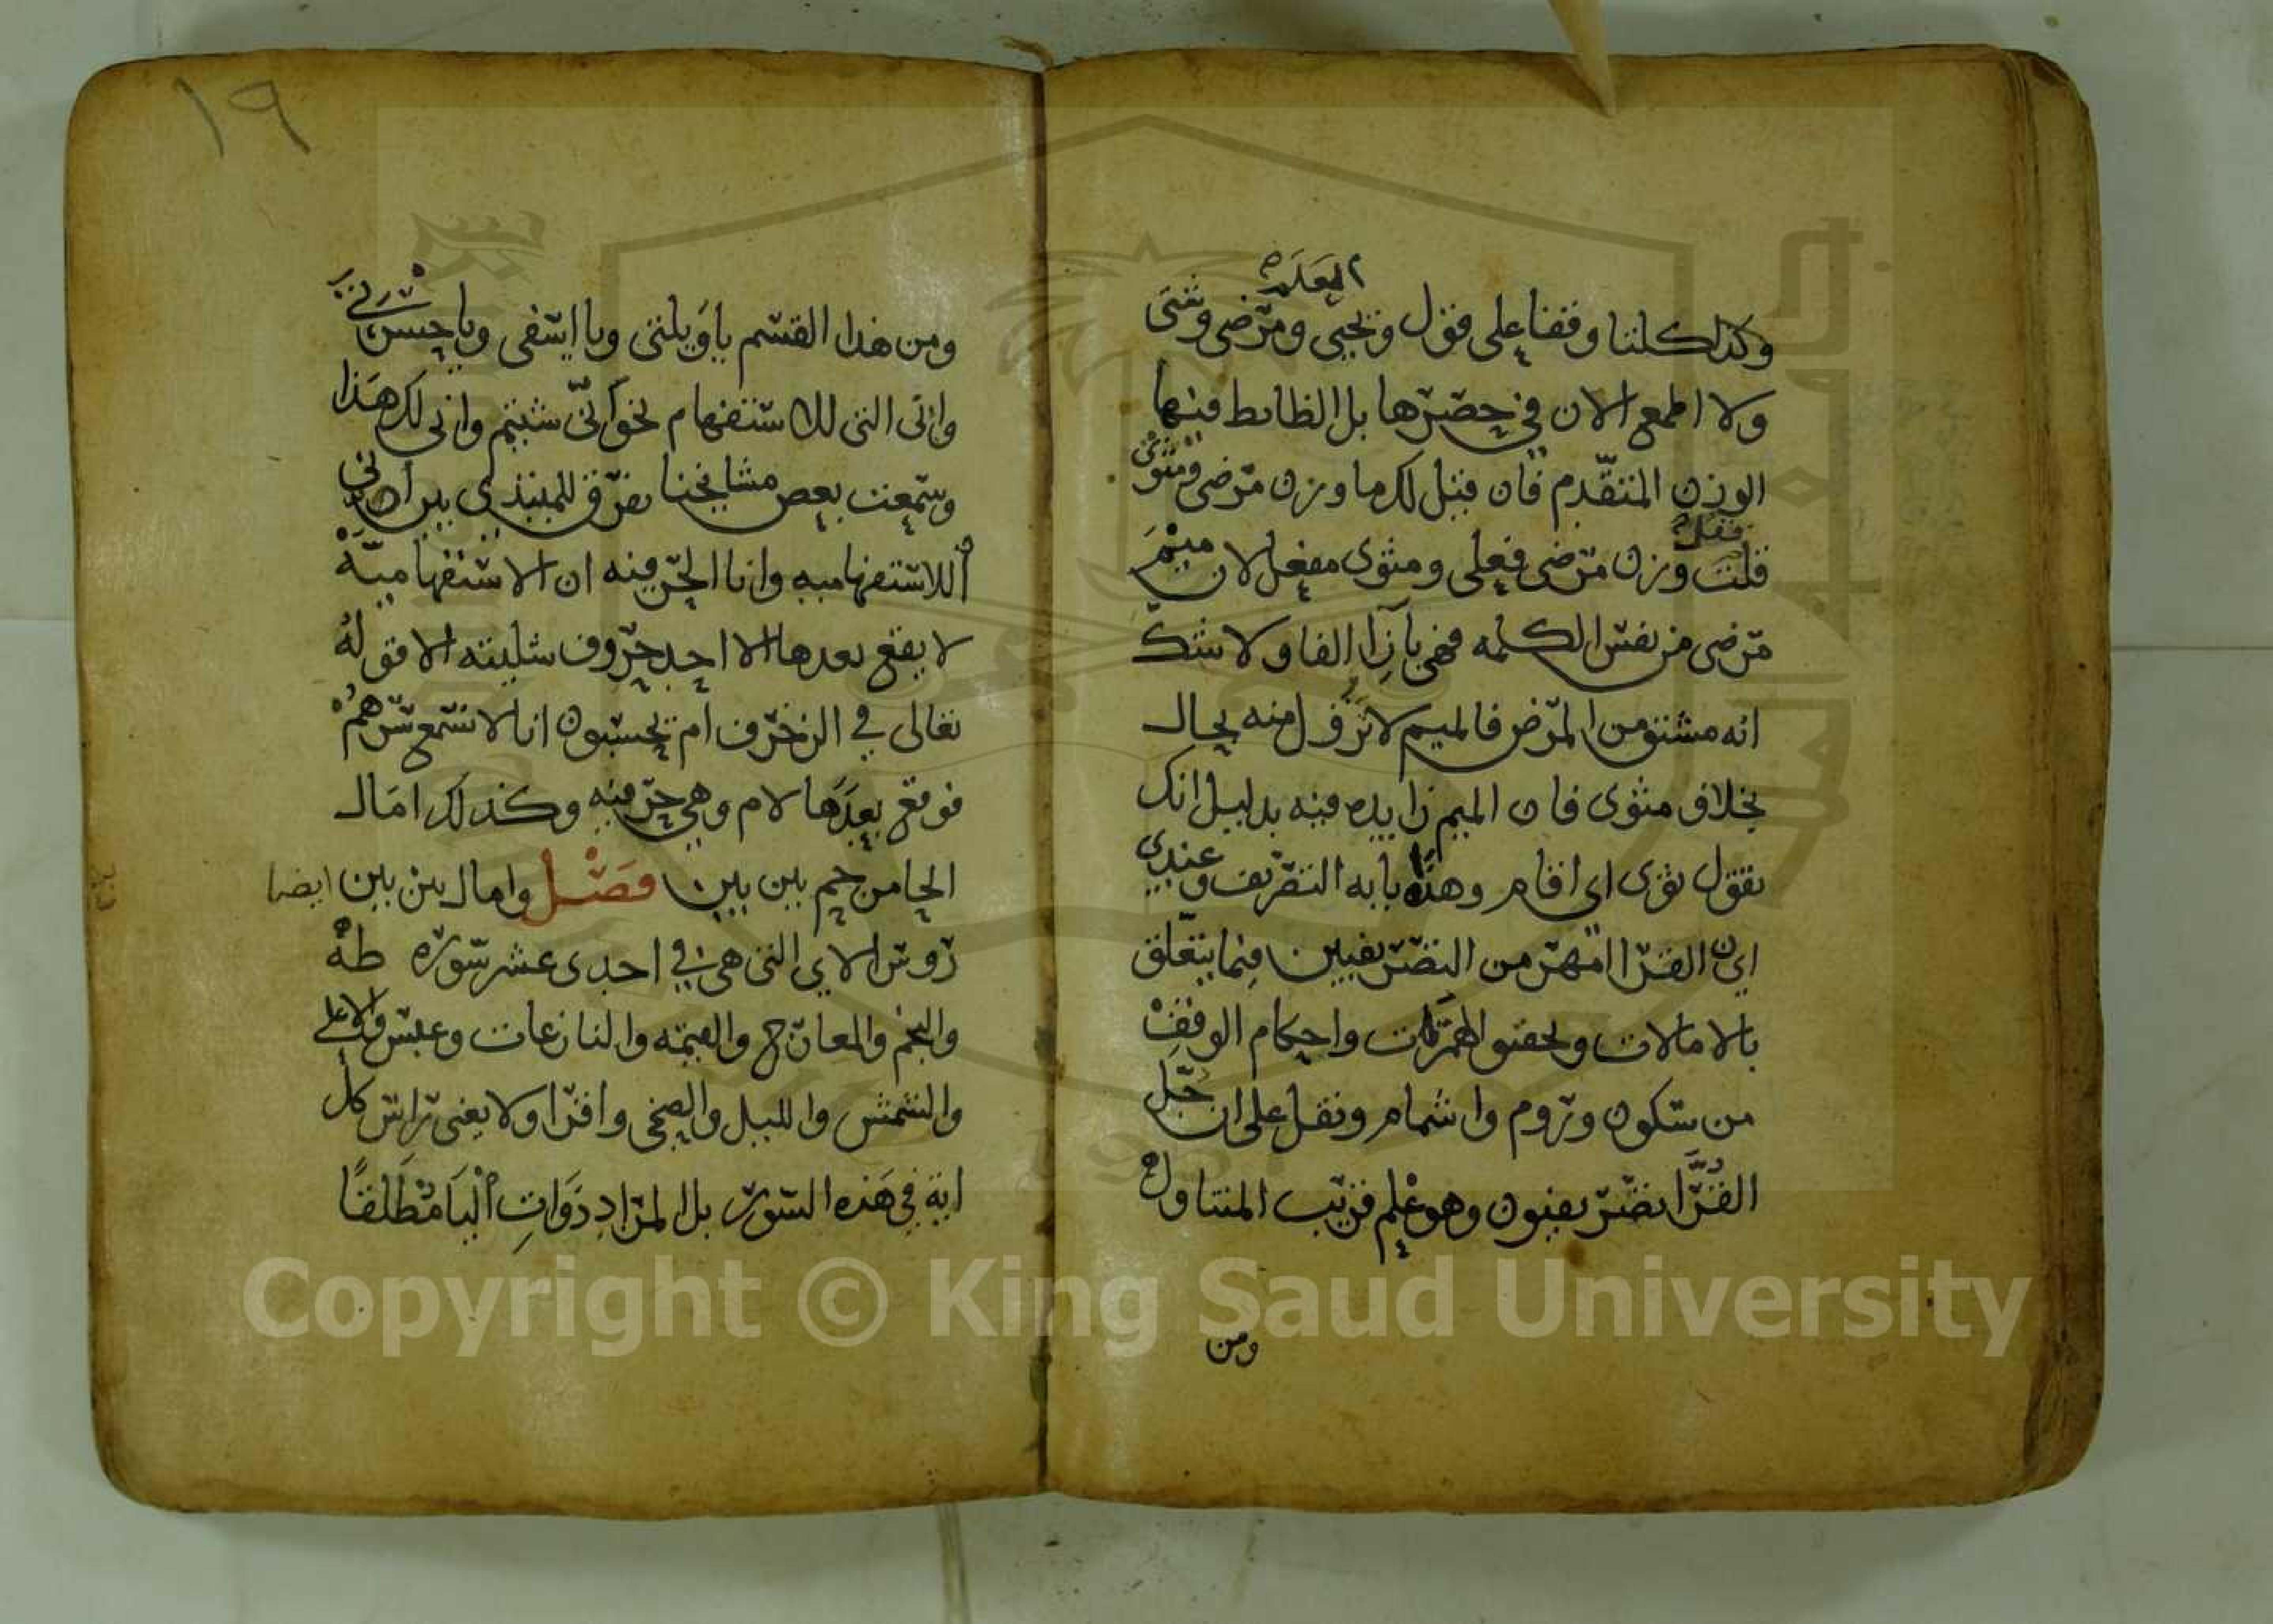 المعلمه
وكذلك لنا وقفنا على قول ويحيى ومرضى وشتى
ولا اطمع الان في حصرها بل الظابط فيها
الوزن المتقدم فان قيل لك ما وزن مرضى ومثوى
قلت وزن مرضى فعلى ومثوى مفعل لان ميم
مفعل
مرضى من نفس الكلمه فهي بازا الفا ولا شك
انه مشتق من المرض فالميم لا تزول منه بحال
بخلاف مثوى فان الميم زايده فيه بدليل انك
تقول ثوى اي اقام وهذا بابه التصريف وعندي
اي ان القرا امهر من التصريفيين فيما يتعلق
بالامالات وتحقيق الهمزات واحكام الوقف
من سكون وروم واشمام ونقل على ان جل
القُرَّا تصريفيون وهو علم قريب المتناول
ومن
١٩
ومن هذا القسم ياويلتى ويا اسفى وياحسرتى
وانى التي للاستفهام نحو انّى شئتم وانى لك هذا
وسمعت بعض مشايخنا يفرق للمبتدي بين انى
الاستفهاميه وانا الحرفيه ان الاستفهاميّة
لا يقع بعدها الا احد حروف شليته الا قوله
تعالى في الزخرف ام تحسبون انا لا نسمع سرهم
فوقع بعدها لام وهي حرفيه وكذلك امال
الحا من حم بين بين فصل وامال بين بين ايضا
روس الاي التي هي في احدى عشر سوره طه
والنجم والمعارج والقيمه والنازعات وعبس والاعلى
والشمس والليل والضحى واقرا ولا يعنى براس كل
اية في هذه السور بل المراد ذَوَاتِ اليا مُطْلقًا
Copyright © King Saud University